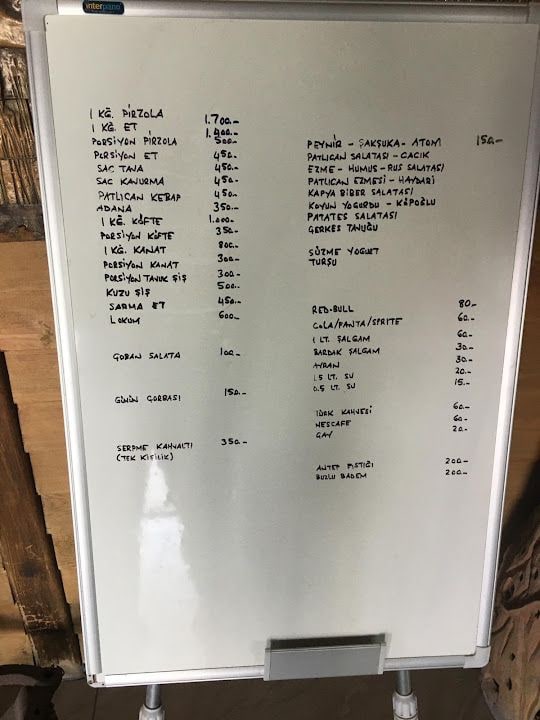 interpano
1 KĞ. PİRZOLA 1.700.-
1 KĞ. ET 1.400.-
PORSİYON PİRZOLA 500.-
PORSİYON ET 450.-
SAC TAVA 450.-
SAC KAVURMA 450.-
PATLICAN KEBAP 450.-
ADANA 350.-
1 KĞ. KÖFTE 1.000.-
PORSİYON KÖFTE 350.-
1 KĞ. KANAT 800.-
PORSİYON KANAT 300.-
PORSİYON TAVUK ŞİŞ 300.-
KUZU ŞİŞ 500.-
SARMA ET 450.-
LOKUM 600.-
ÇOBAN SALATA 100.-
GÜNÜN ÇORBASI 150.-
SERPME KAHVALTI 350.-
(TEK KİŞİLİK)
PEYNİR - ŞAKŞUKA - ATOM 150.-
PATLICAN SALATASI - CACIK
EZME - HUMUS - RUS SALATASI
PATLICAN EZMESİ - HAYDARİ
KAPYA BİBER SALATASI
KOYUN YOGURDU - KÖPOĞLU
PATATES SALATASI
ÇERKES TAVUĞU
SÜZME YOGURT
TURŞU
RED-BULL 80.-
COLA/FANTA/SPRITE 60.-
1 LT. ŞALGAM 60.-
BARDAK ŞALGAM 30.-
AYRAN 30.-
1.5 LT. SU 20.-
0.5 LT. SU 15.-
TÜRK KAHVESİ 60.-
NESCAFE 60.-
ÇAY 20.-
ANTEP FISTIĞI 200.-
BUZLU BADEM 200.-